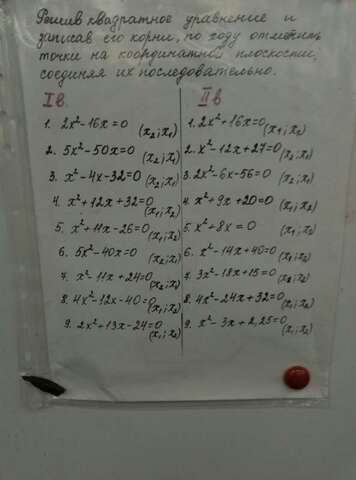 Решив квадратное уравнение и
записав его корни, по ходу отметить
точки на координатной плоскости,
соединяя их последовательно.
I в.
1. 2x²-16x=0 (x₂; x₁)
2. 5x²-50x=0 (x₂; x₁)
3. x²-4x-32=0 (x₂; x₁)
4. x²+12x+32=0 (x₁; x₂)
5. x²+11x-26=0 (x₁; x₂)
6. 5x²-40x=0 (x₂; x₁)
7. x²-11x+24=0 (x₂; x₁)
8. 4x²-12x-40=0 (x₁; x₂)
9. 2x²+13x-24=0 (x₁; x₂)
II в
1. 2x²+16x=0 (x₁; x₂)
2. x²-12x+27=0 (x₂; x₁)
3. 2x²-6x-56=0 (x₂; x₁)
4. x²+9x+20=0 (x₁; x₂)
5. x²+8x=0 (x₁; x₂)
6. x²-14x+40=0 (x₁; x₂)
7. 3x²-18x+15=0 (x₂; x₁)
8. 4x²-24x+32=0 (x₁; x₂)
9. x²-3x+2,25=0 (x₁; x₂)